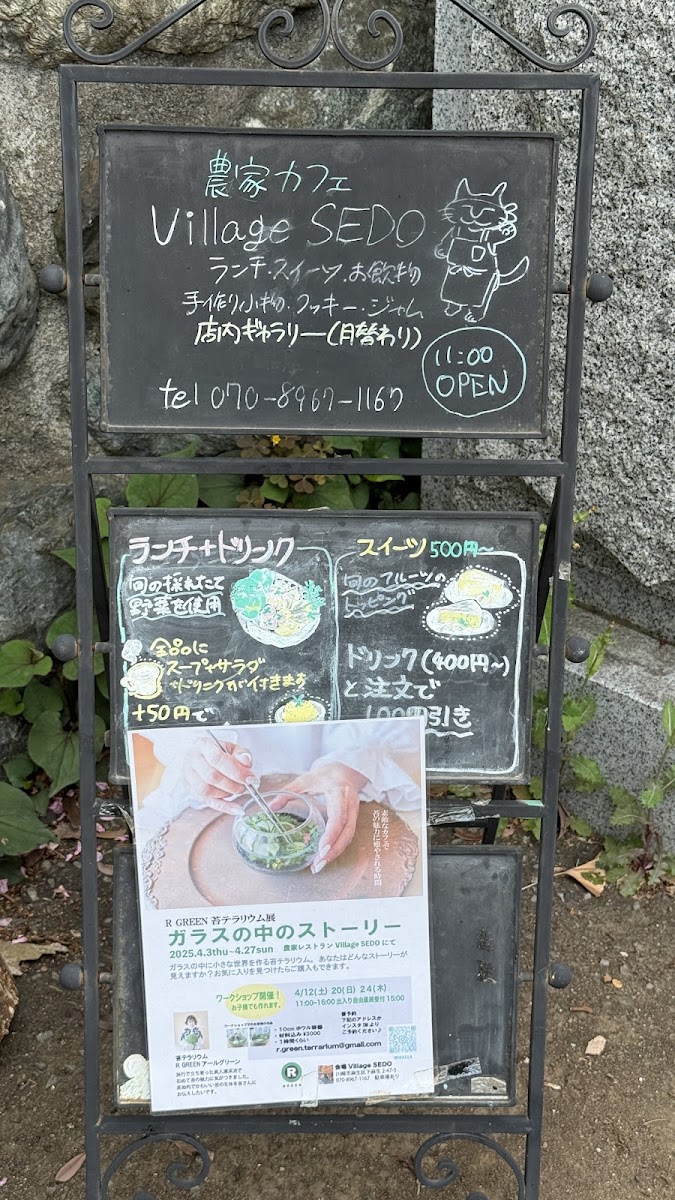 農家カフェ
Village SEDO
ランチ・スイーツ・お飲物
手作り小物・クッキー・ジャム
店内ギャラリー(月替わり)
11:00
OPEN
tel 070-8967-1167
ランチ+ドリンク
旬の採れたて
野菜を使用
全品に
スープ+サラダ
+ドリンクが付きます
+50円で
スイーツ 500円~
旬のフルーツの
トッピング
ドリンク(400円~)
と注文で
100円引き
素敵なカフェで
苔の魅力に癒やされる時間
R GREEN 苔テラリウム展
ガラスの中のストーリー
2025.4.3thu~4.27sun 農家レストラン Village SEDO にて
ガラスの中に小さな世界を作る苔テラリウム。あなたはどんなストーリーが
見えますか?お気に入りを見つけたらご購入もできます。
ワークショップ開催!
お子様でも作れます。
4/12(土) 20(日) 24(木)
11:00~16:00 出入り自由最終受付 15:00
・10cm ボウル容器
・材料込み ¥3000
・1時間くらい
要予約
下記のアドレスか
インスタ DM より
ご予約ください♪
r.green.terrarium@gmail.com
苔テラリウム
R GREEN アールグリーン
R
GREEN
会場 Village SEDO
川崎市麻生区下麻生 2-47-5
070-8967-1167 駐車場あり